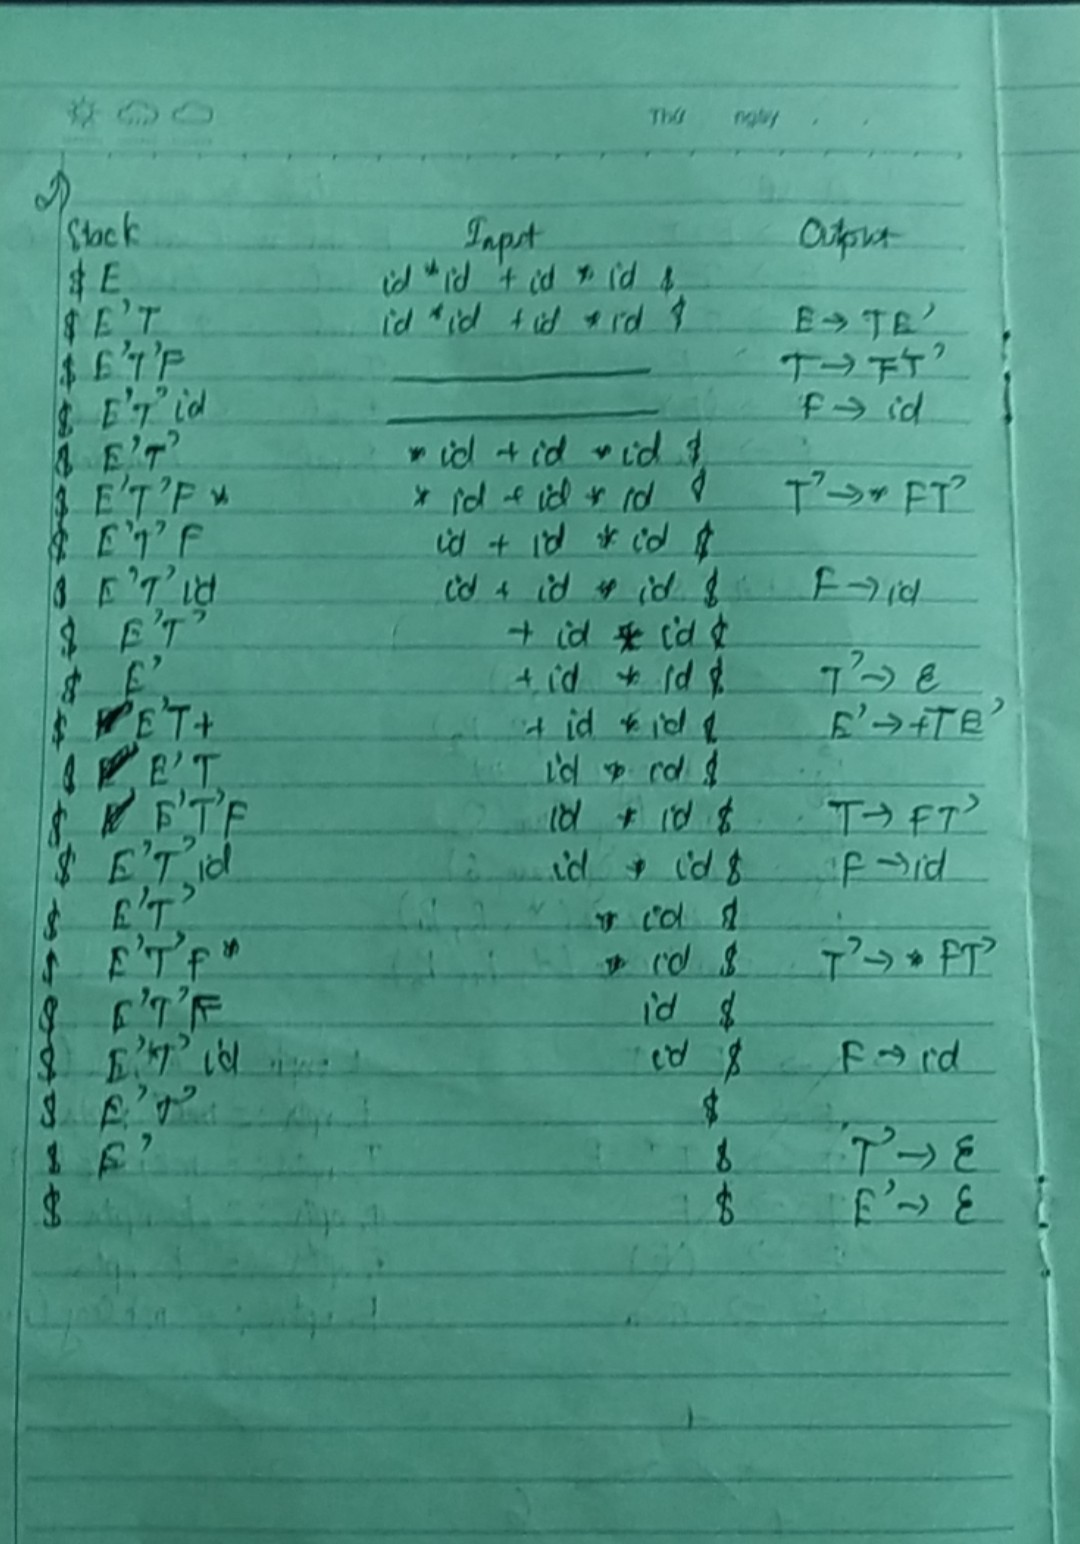 Thứ ngày . .
2)
Stack Input Output
$ E id * id + id * id $
$ E'T id * id + id * id $ E → TE'
$ E'T'F T → FT'
$ E'T'id F → id
$ E'T' * id + id * id $
$ E'T'F * * id + id * id $ T' → * FT'
$ E'T'F id + id * id $
$ E'T'id id + id * id $ F → id
$ E'T' + id * id $
$ E' + id * id $ T' → ε
$ E'T+ + id * id $ E' → +TE'
$ E'T id * id $
$ E'T'F id * id $ T → FT'
$ E'T'id id * id $ F → id
$ E'T' * id $
$ E'T'F * * id $ T' → * FT'
$ E'T'F id $
$ E'T'id id $ F → id
$ E'T' $
$ E' $ T' → ε
$ $ E' → ε